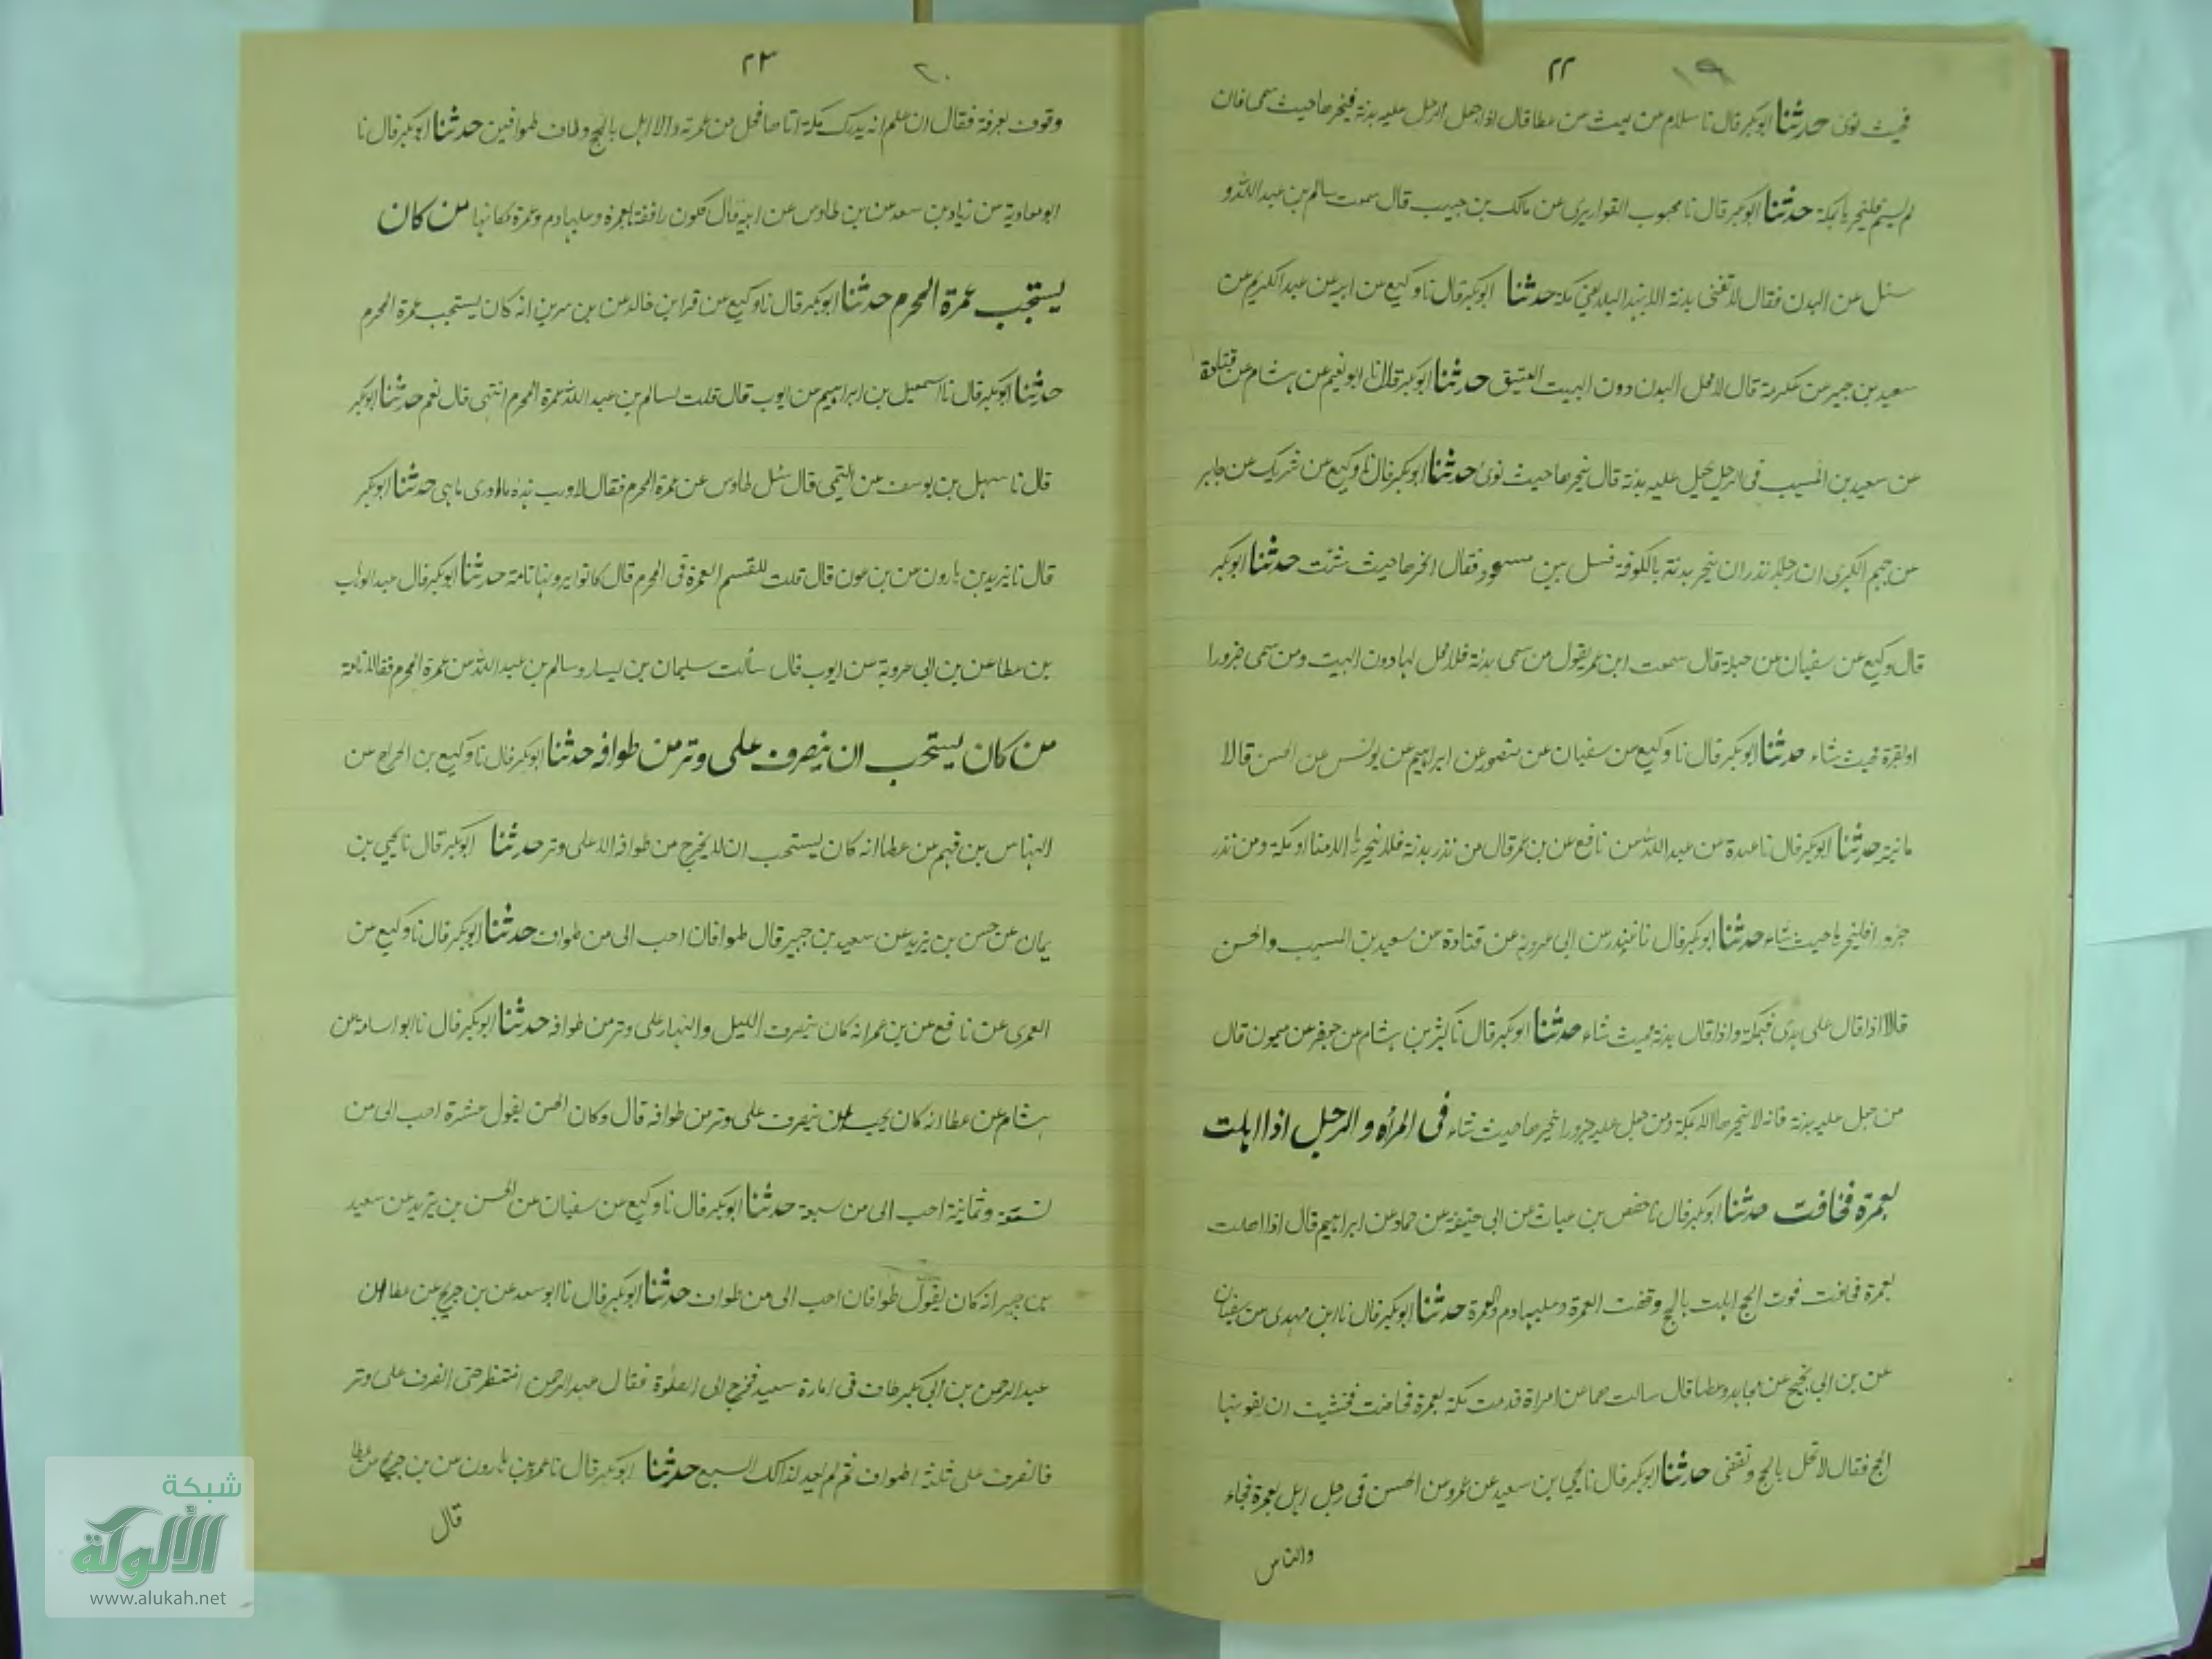 ١٩ ٢٢
فحيث نوى حدثنا ابوبكر قال نا سلام عن ليث عن عطا قال اذا جعل الرجل عليه بدنة فينحرها حيث سمى فان
لم يسم فلينحرها بمكة حدثنا ابوبكر قال نا محبوب القواريرى عن مالك بن حبيب قال سمعت سالم بن عبد الله و
سئل عن البدن فقال لا تغنى بدنة الا بهذا البلد يعنى مكة حدثنا ابوبكر قال نا وكيع عن ابيه عن عبد الكريم عن
سعيد بن جبير عن عكرمة قال لا محل البدن دون البيت العتيق حدثنا ابوبكر قال نا ابو نعيم عن هشام عن قتادة
عن سعيد بن المسيب فى الرجل يجعل عليه بدنة قال ينحرها حيث نوى حدثنا ابوبكر قال نا وكيع عن شريك عن جابر
عن جهم البكرى ان رجلا نذر ان ينحر بدنة بالكوفة فسئل بن مسعود فقال انحرها حيث شئت حدثنا ابوبكر
قال وكيع عن سفيان عن جبلة قال سمعت ابن عمر يقول من سمى بدنة فلا محل لها دون البيت ومن سمى جزورا
او بقرة فحيث شاء حدثنا ابوبكر قال نا وكيع عن سفيان عن منصور عن ابراهيم عن يونس عن الحسن قالا
مانيته حدثنا ابوبكر قال نا عبدة عن عبد الله عن نافع عن بن عمر قال من نذر بدنة فلا ينحرها الا بمنا او مكة ومن نذر
جزورا فلينحرها حيث شاء حدثنا ابوبكر قال نا غندر عن ابى عروبة عن قتادة عن سعيد بن المسيب والحسن
قالا اذا قال على هدى فبمكة واذا قال بدنة فحيث شاء حدثنا ابوبكر قال نا كثير بن هشام عن جعفر عن ميمون قال
من جعل عليه بدنة فانه لا ينحرها الا بمكة ومن جعل عليه جزورا نحرها حيث شاء فى المرأة والرجل اذا اهلت
بعمرة فخافت حدثنا ابوبكر قال نا حفص بن غياث عن ابى حنيفة عن حماد عن ابراهيم قال اذا اهلت
بعمرة فخافت فوت الحج اهلت بالحج وقضت العمرة وعليها دم والعمرة حدثنا ابوبكر قال نا ابن مهدى عن سفيان
عن بن ابى نجيح عن مجاهد وعطا قال سالت هما عن امراة قدمت مكة بعمرة فحاضت فخشيت ان يفوتها
الحج فقال لا تهل بالحج وتقضى حدثنا ابوبكر قال نا يحيى بن سعيد عن عمرو عن الحسن فى رجل اهل بعمرة فجاء
والناس
٢٠ ٢٣
وقوف بعرفة فقال ان علم انه يدرك مكة اتاها فحل من عمرته والا اهل بالحج وطاف طوافين حدثنا ابوبكر قال نا
ابو معاوية عن زياد بن سعد عن بن طاوس عن ابيه قال تكون رافضة بالعمرة وعليها دم وعمرة مكانها من كان
يستحب عمرة المحرم حدثنا ابوبكر قال نا وكيع عن قرة بن خالد عن بن سرين انه كان يستحب عمرة المحرم
حدثنا ابوبكر قال نا اسمعيل بن ابراهيم عن ايوب قال قلت لسالم بن عبد الله عمرة المحرم انتهى قال نعم حدثنا ابوبكر
قال نا سهل بن يوسف عن التيمى قال سئل طاوس عن عمرة المحرم فقال لا ورب هذه ما ادرى ما هى حدثنا ابوبكر
قال نا يزيد بن هارون عن بن عون قال قلت للقسم العمرة فى المحرم قال كانوا يرونها تامة حدثنا ابوبكر قال عبد الوهاب
بن عطا عن بن ابى عروبة عن ايوب قال سألت سليمان بن يسار وسالم بن عبد الله عن عمرة المحرم فقالا تامة
من كان يستحب ان ينصرف على وتر من طوافه حدثنا ابوبكر قال نا وكيع بن الجراح عن
النهاس بن قهم عن عطا انه كان يستحب ان لا يخرج من طوافه الا على وتر حدثنا ابوبكر قال نا يحيى بن
يمان عن حسن بن يزيد عن سعيد بن جبير قال طوافان احب الى من طواف حدثنا ابوبكر قال نا وكيع عن
العمرى عن نافع عن بن عمر انه كان ينصرف الليل والنهار على وتر من طوافه حدثنا ابوبكر قال نا ابو اسامة عن
هشام عن عطا انه كان يحب ان ينصرف على وتر من طوافه قال وكان الحسن يقول عشرة احب الى من
تسعة وثمانية احب الى من سبعة حدثنا ابوبكر قال نا وكيع عن سفيان عن الحسن بن يزيد عن سعيد
بن جبير انه كان يقول طوافان احب الى من طواف حدثنا ابوبكر قال نا ابو سعد عن بن جريج عن عطا ان
عبد الرحمن بن ابى بكر طاف فى امارة سعيد فخرج الى الصلوة فقال عبد الرحمن انتظر حتى انصرف على وتر
فانصرف على ثلثة اطواف ثم لم يعد لذلك السبع حدثنا ابوبكر قال نا عمرو بن هارون عن بن جريج عن عطا
قال
شبكة
الألوكة
www.alukah.net